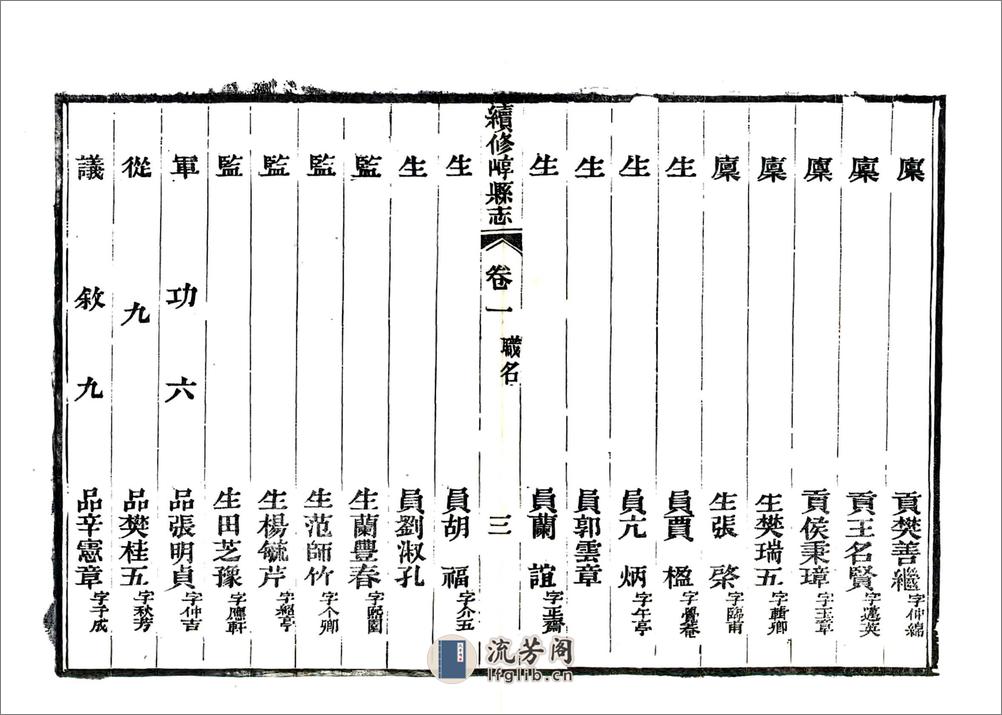 廩貢樊善繼字仲綿
廩貢王名賢字邁英
廩貢侯秉璋字玉章
廩生樊瑞五字輯卿
廩生張棨字臨甫
生員賈楹字覺菴
生員亢炳字午亭
生員郭雲章
生員蘭誼字正齋
續修崞縣志 卷一 職名 三
生員胡福字介五
生員劉淑孔
監生蘭豐春字熙園
監生范師竹字个卿
監生楊毓芹字經亭
監生田芝豫字應軒
軍功六品張明貞字仲吉
從九品樊桂五字秋芳
議敘九品辛憲章字子成
流芳阁
lfglib.cn